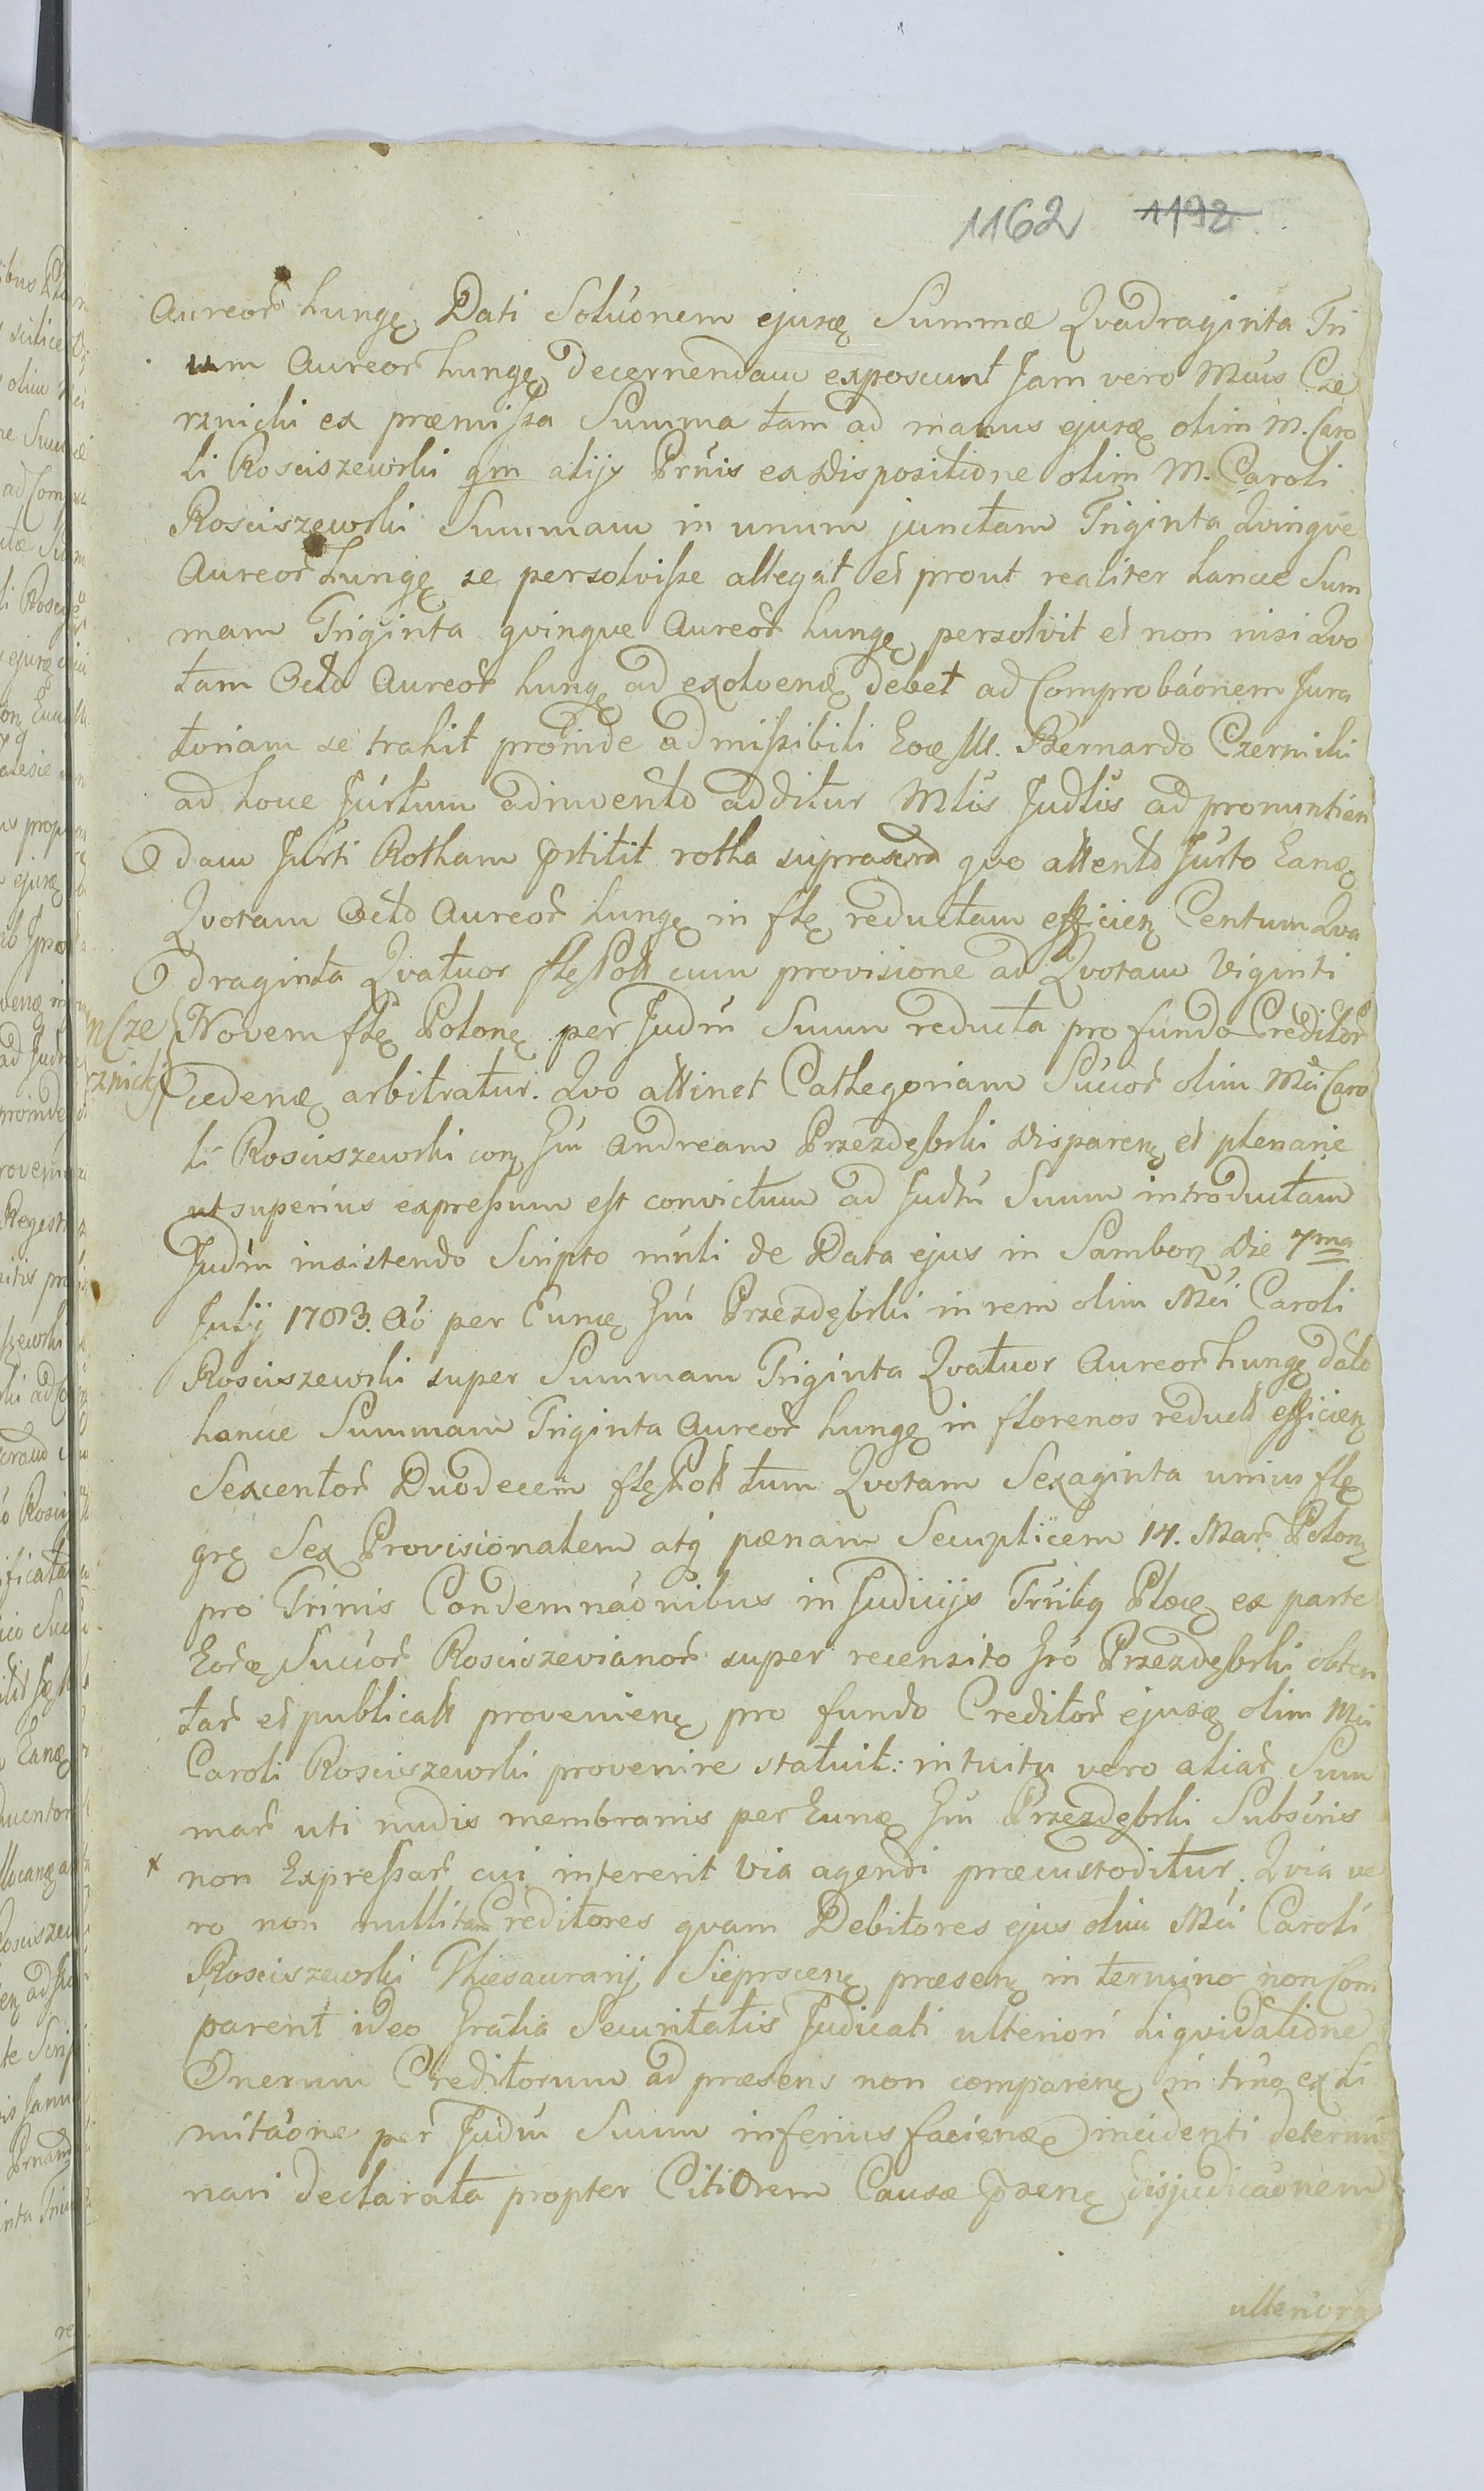 1162 1192
Aureor̃ hungę Dati Soluõnem ejusę Summæ Qvadraginta Tri
um Aureor̃ hungę decernendam exposcunt Jam vero Mcus Cze
rznicki ex præmissa Summa tam ad manus ejusę olim M. Caro
li Rosciszewski qm alijs Prñis ex dispositione olim M. Caroli
Rosciszewski Summam in unum junctam Triginta Qvinqve
Aureor̃ hungę se persolvisse allegat et prout realiter hancce Sum
mam Triginta qvinqve Aureor̃ hungę persolvit et non nisi Qvo
tam Octo Aureor̃ hungę ad exolvenę debet ad Comprobãonem Jura
toriam se trahit proinde admissibili Eoę M. Bernardo Czernicki
ad hocce Jũrtum adinvento additur Mtis Judtis ad pronuntian
dam Jurti Rotham pstitit rotha suprascra quo attento Jurto Eanę
Qvotam Octo Aureor̃ hungę in flę reductam efficienę Centum Qva
draginta Qvatuor flę Poll cum provisione ad Qvotam Viginti
Novem flę Polonę per Judm̃ Suum reducta pro fundo Creditor̃
n Cze
rznicki
cedenę arbitratur. Qvo attinet Cathegoriam Succor̃ olim Mci Caro
li Rosciszewski conę Gm̃ Andream Przezdębski disparenę et plenarie
ut superius expressum est convictum ad Judm̃ Suum introductam
Judm̃ insistendo Scripto mñli de Data ejus in Samborz Die 7ma
Julij 1783. Aõ per Eunę Gm̃ Przezdębski in rem olim Mci Caroli
Rosciszewski super Summam Triginta Qvatuor Aureor̃ hungę dato
hancce Summam Triginta Aureor̃ hungę in florenos reduct efficienę
Sexcentor̃ Duodecem flę Poll tum Qvotam Sexaginta unius flę
grę Sex Provisionalem atq pœnam Secuplicem 14. Mar̃ Polonę
pro Trinis Condemnãonibus in Judicijs Trñlbq Plocę ex parte
Eor̃ę Succor̃ Rosciszevianor̃ super recensito Gro Przezdębski obten
tar̃ et publicatt provenienę pro fundo Creditor̃ ejusę olim Mci
Caroli Rosciszewski provenire statuit: intuitu vero aliar̃ Sum
mar̃ uti nudis membranis per Eunę Gm̃ Przezdębski Subscris
x non Expressar̃ cui intererit via agendi præcustoditur. Qvia ve
ro non nulli tam Creditores quam Debitores ejus olim Mci Caroli
Rosciszewski Thesaurarij Sieprscenę præsenę in termino non Com
parent ideo Gratia Securitatis Judicati ulteriori liqvidatione
Onerum Creditorum ad præsens non comparenę in trno ex li
mitãone per Judm̃ Suum inferius facienę incidenti determi
nari declarata propter Citiorem Causæ psenę disjudicãonem
ulteriora